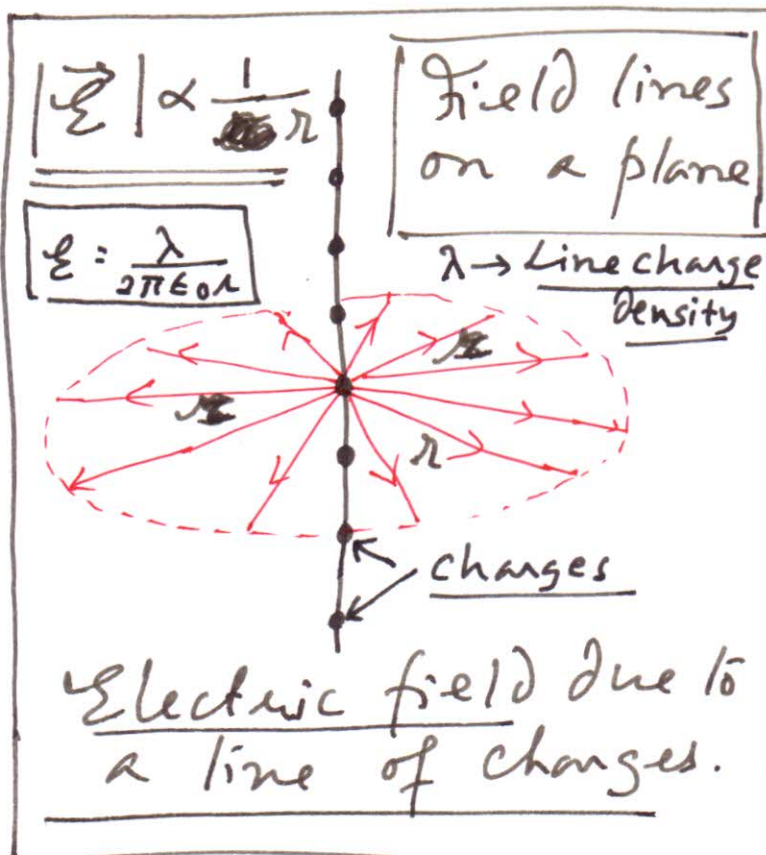 |ℰ⃗| ∝ 1/r
Field lines
on a plane
ℰ = λ/2πϵ₀r
λ → Line charge
density
r
charges
Electric field due to
a line of charges.